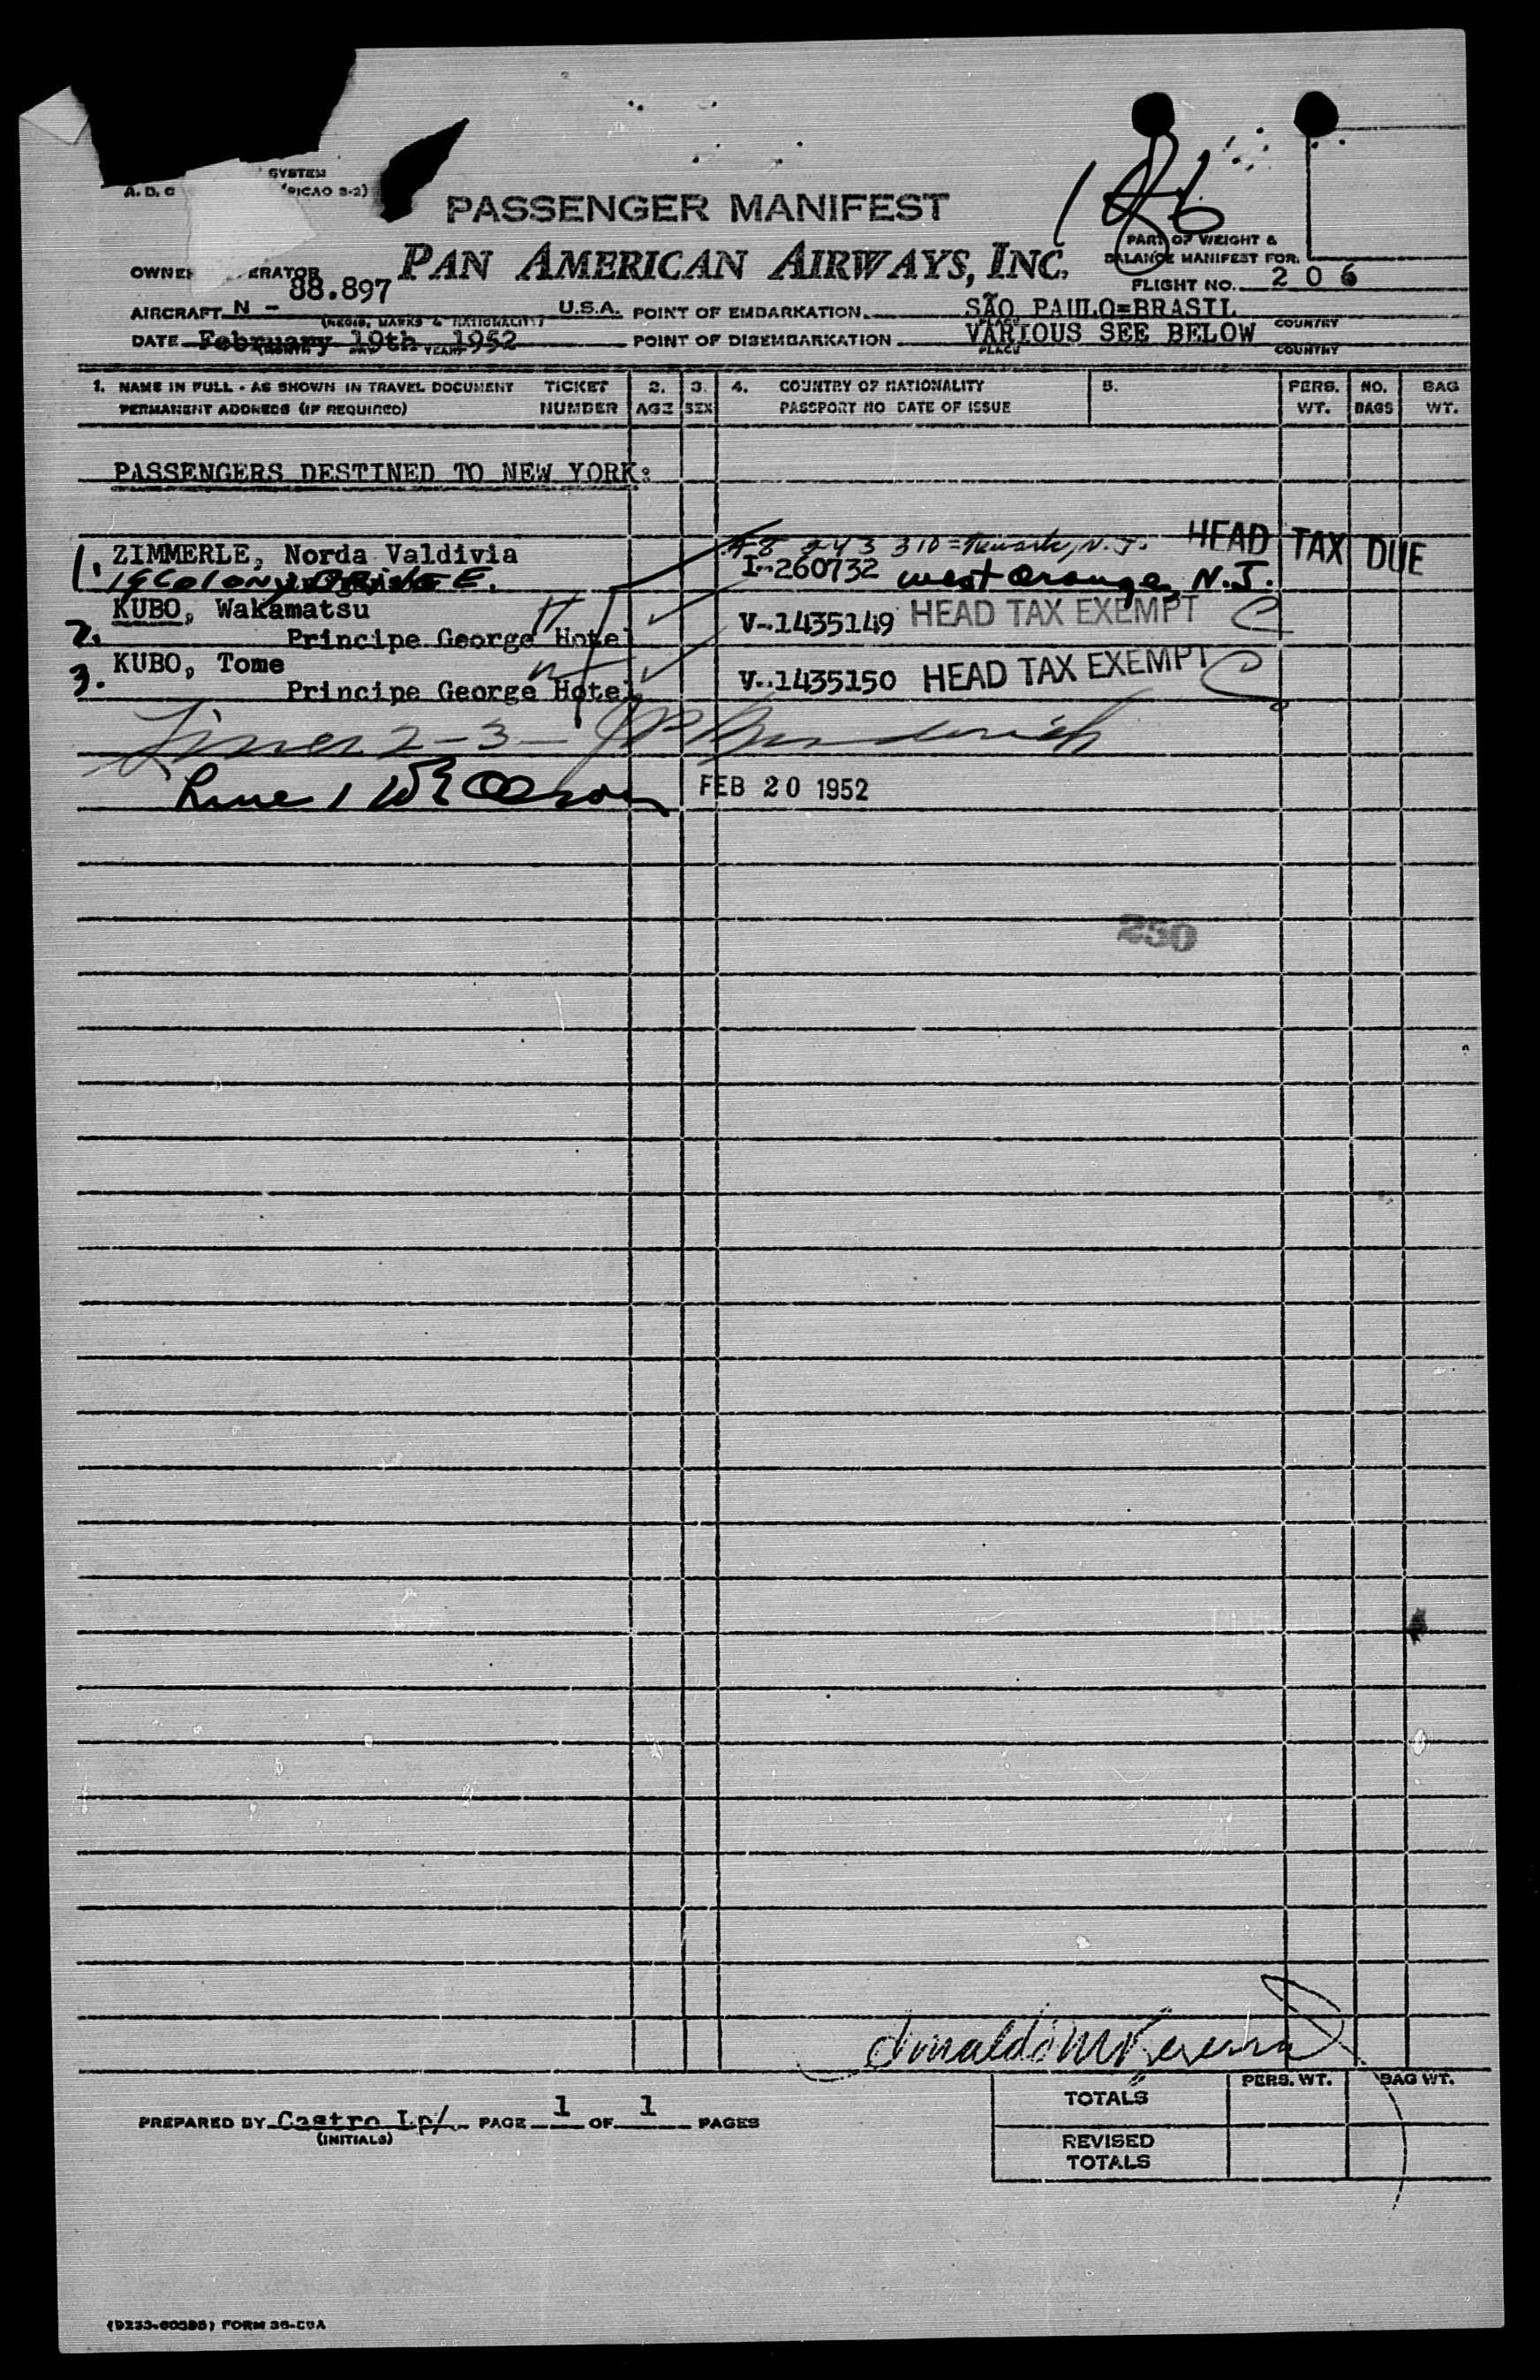 SYSTEM
A. D. C (ICAO 3-2)
186
PASSENGER MANIFEST
PART OF WEIGHT &
BALANCE MANIFEST FOR:
PAN AMERICAN AIRWAYS, INC.
FLIGHT NO. 206
88.897
AIRCRAFT N - U.S.A. POINT OF EMBARKATION SÃO PAULO=BRASIL
(REGIS. MARKS & NATIONALITY) PLACE COUNTRY
DATE February 19th 1952 POINT OF DISEMBARKATION VARIOUS SEE BELOW
PLACE COUNTRY
1. NAME IN FULL - AS SHOWN IN TRAVEL DOCUMENT TICKET 2. 3. 4. COUNTRY OF NATIONALITY 5. PERS. NO. BAG
PERMANENT ADDRESS (IF REQUIRED) NUMBER AGE SEX PASSPORT NO DATE OF ISSUE WT. BAGS WT.
PASSENGERS DESTINED TO NEW YORK:
HEAD TAX DUE
1. ZIMMERLE, Norda Valdivia
19 Colony Drive E. I-260732 West Orange, N.J.
KUBO, Wakamatsu
2. Principe George Hotel V-1435149 HEAD TAX EXEMPT
KUBO, Tome
3. Principe George Hotel V-1435150 HEAD TAX EXEMPT
Lines 2-3-
Line 1 FEB 20 1952
250
PERS. WT. BAG WT.
TOTALS
PREPARED BY Castro Lp/ PAGE 1 OF 1 PAGES
(INITIALS)
REVISED
TOTALS
FORM 36-CUA